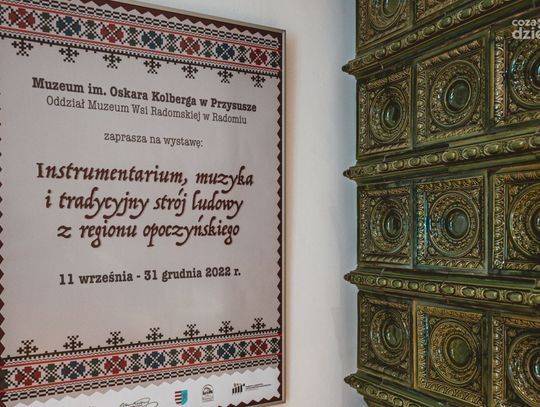 Muzeum im. Oskara Kolberga w Przysusze
Oddział Muzeum Wsi Radomskiej w Radomiu
zaprasza na wystawę:
Instrumentarium, muzyka
i tradycyjny strój ludowy
z regionu opoczyńskiego
11 września - 31 grudnia 2022 r.